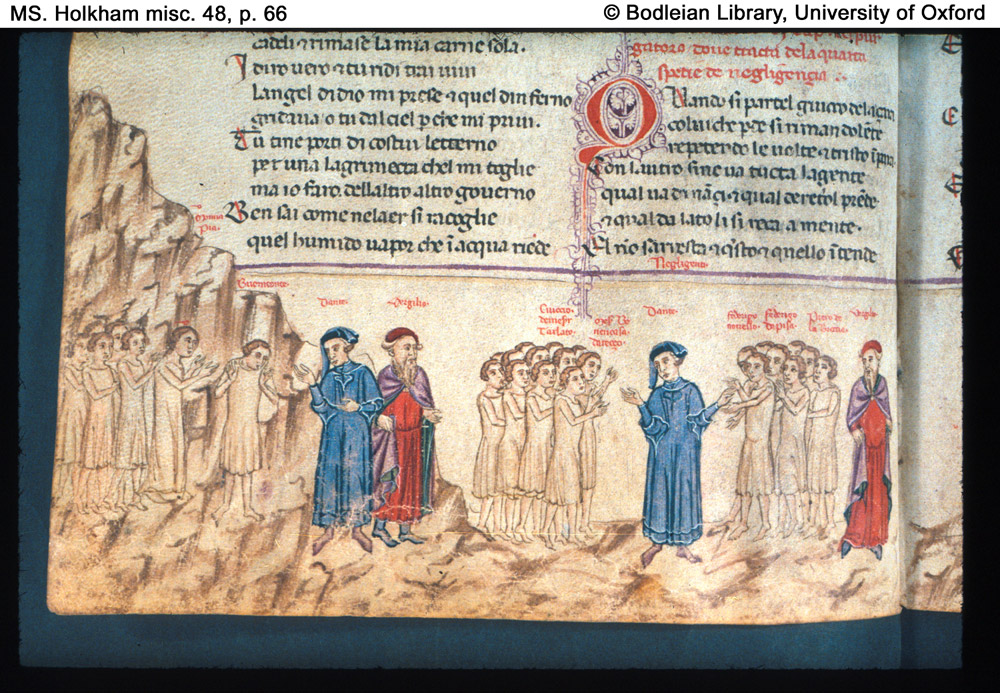 MS. Holkham misc. 48, p. 66
© Bodleian Library, University of Oxford
cadde & rimase la mia carne sola.
I diro vero & tu ridi
Langel didio mi prese & quel dinferno
gridava o tu dal ciel p che mi privi.
Tu tine porti di costui letterno
per una lagrimetta chel mi toglie
ma io faro dellaltro altro governo
Ben sai come nelaer si racoglie
quel humido vapor che ī acqua riede
gatoro dove tracta dela quarta
spetie de negligēcia
Quando si partel giuoco dela
colui che pde si riman dolēte
repetendo le volte & tristo īpara
Con laltro sine va tucta lagente
qual va dināçi & qual deretol prēde
& qual da lato li si reca a mente.
El nō sarresta & q̄sto & quello ītende
Negligenti.
pia.
Buonconte.
Dante.
Virgilio.
Ciuccio
de mess
Tarlato.
da reço.
Dante.
federigo
novello.
federigo
da pisa.
Virgilio